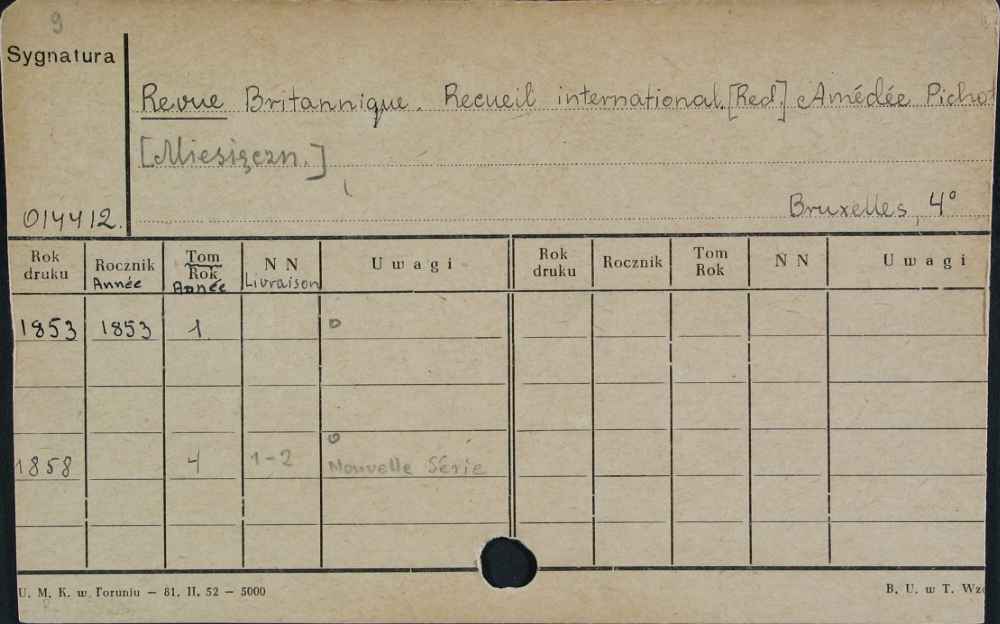 9
Sygnatura
Revue Britannique. Recueil international. [Red.] Amédée Pichot
[Miesięczn.]
014412.
Bruxelles, 4°
Rok druku Rocznik Année Tom Rok Année NN Livraison Uwagi Rok druku Rocznik Tom Rok NN Uwagi
1853 1853 1 o
o
1858 4 1-2 Nouvelle Série
U. M. K. w Toruniu — 81. II. 52 — 5000
B. U. w T. Wzó